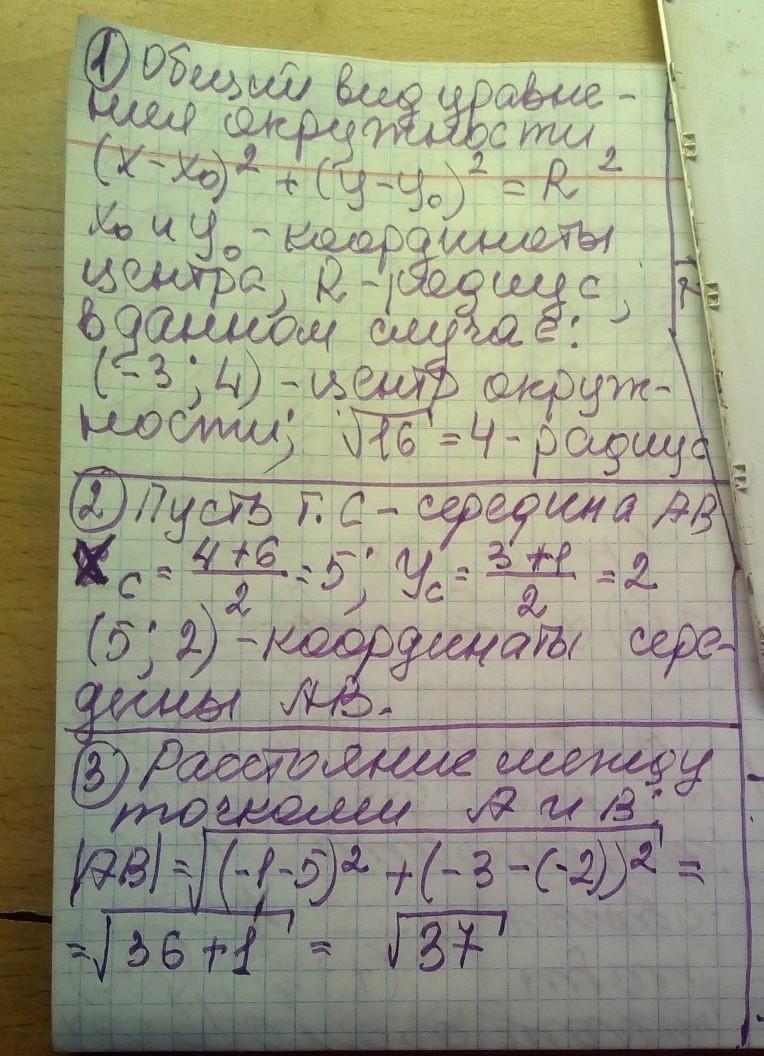 ① Общий вид уравне-
ния окружности
(x-x₀)² + (y-y₀)² = R²
x₀ и y₀ - координаты
центра, R - радиус,
в данном случае:
(-3; 4) - центр окруж-
ности; √16 = 4 - радиус
② Пусть т. С - середина АВ
X_C = (4+6)/2 = 5; Y_C = (3+1)/2 = 2
(5; 2) - координаты сере-
дины АВ.
③ Расстояние между
точками А и В:
|AB| = √((-1-5)² + (-3-(-2))²) =
= √(36+1) = √37